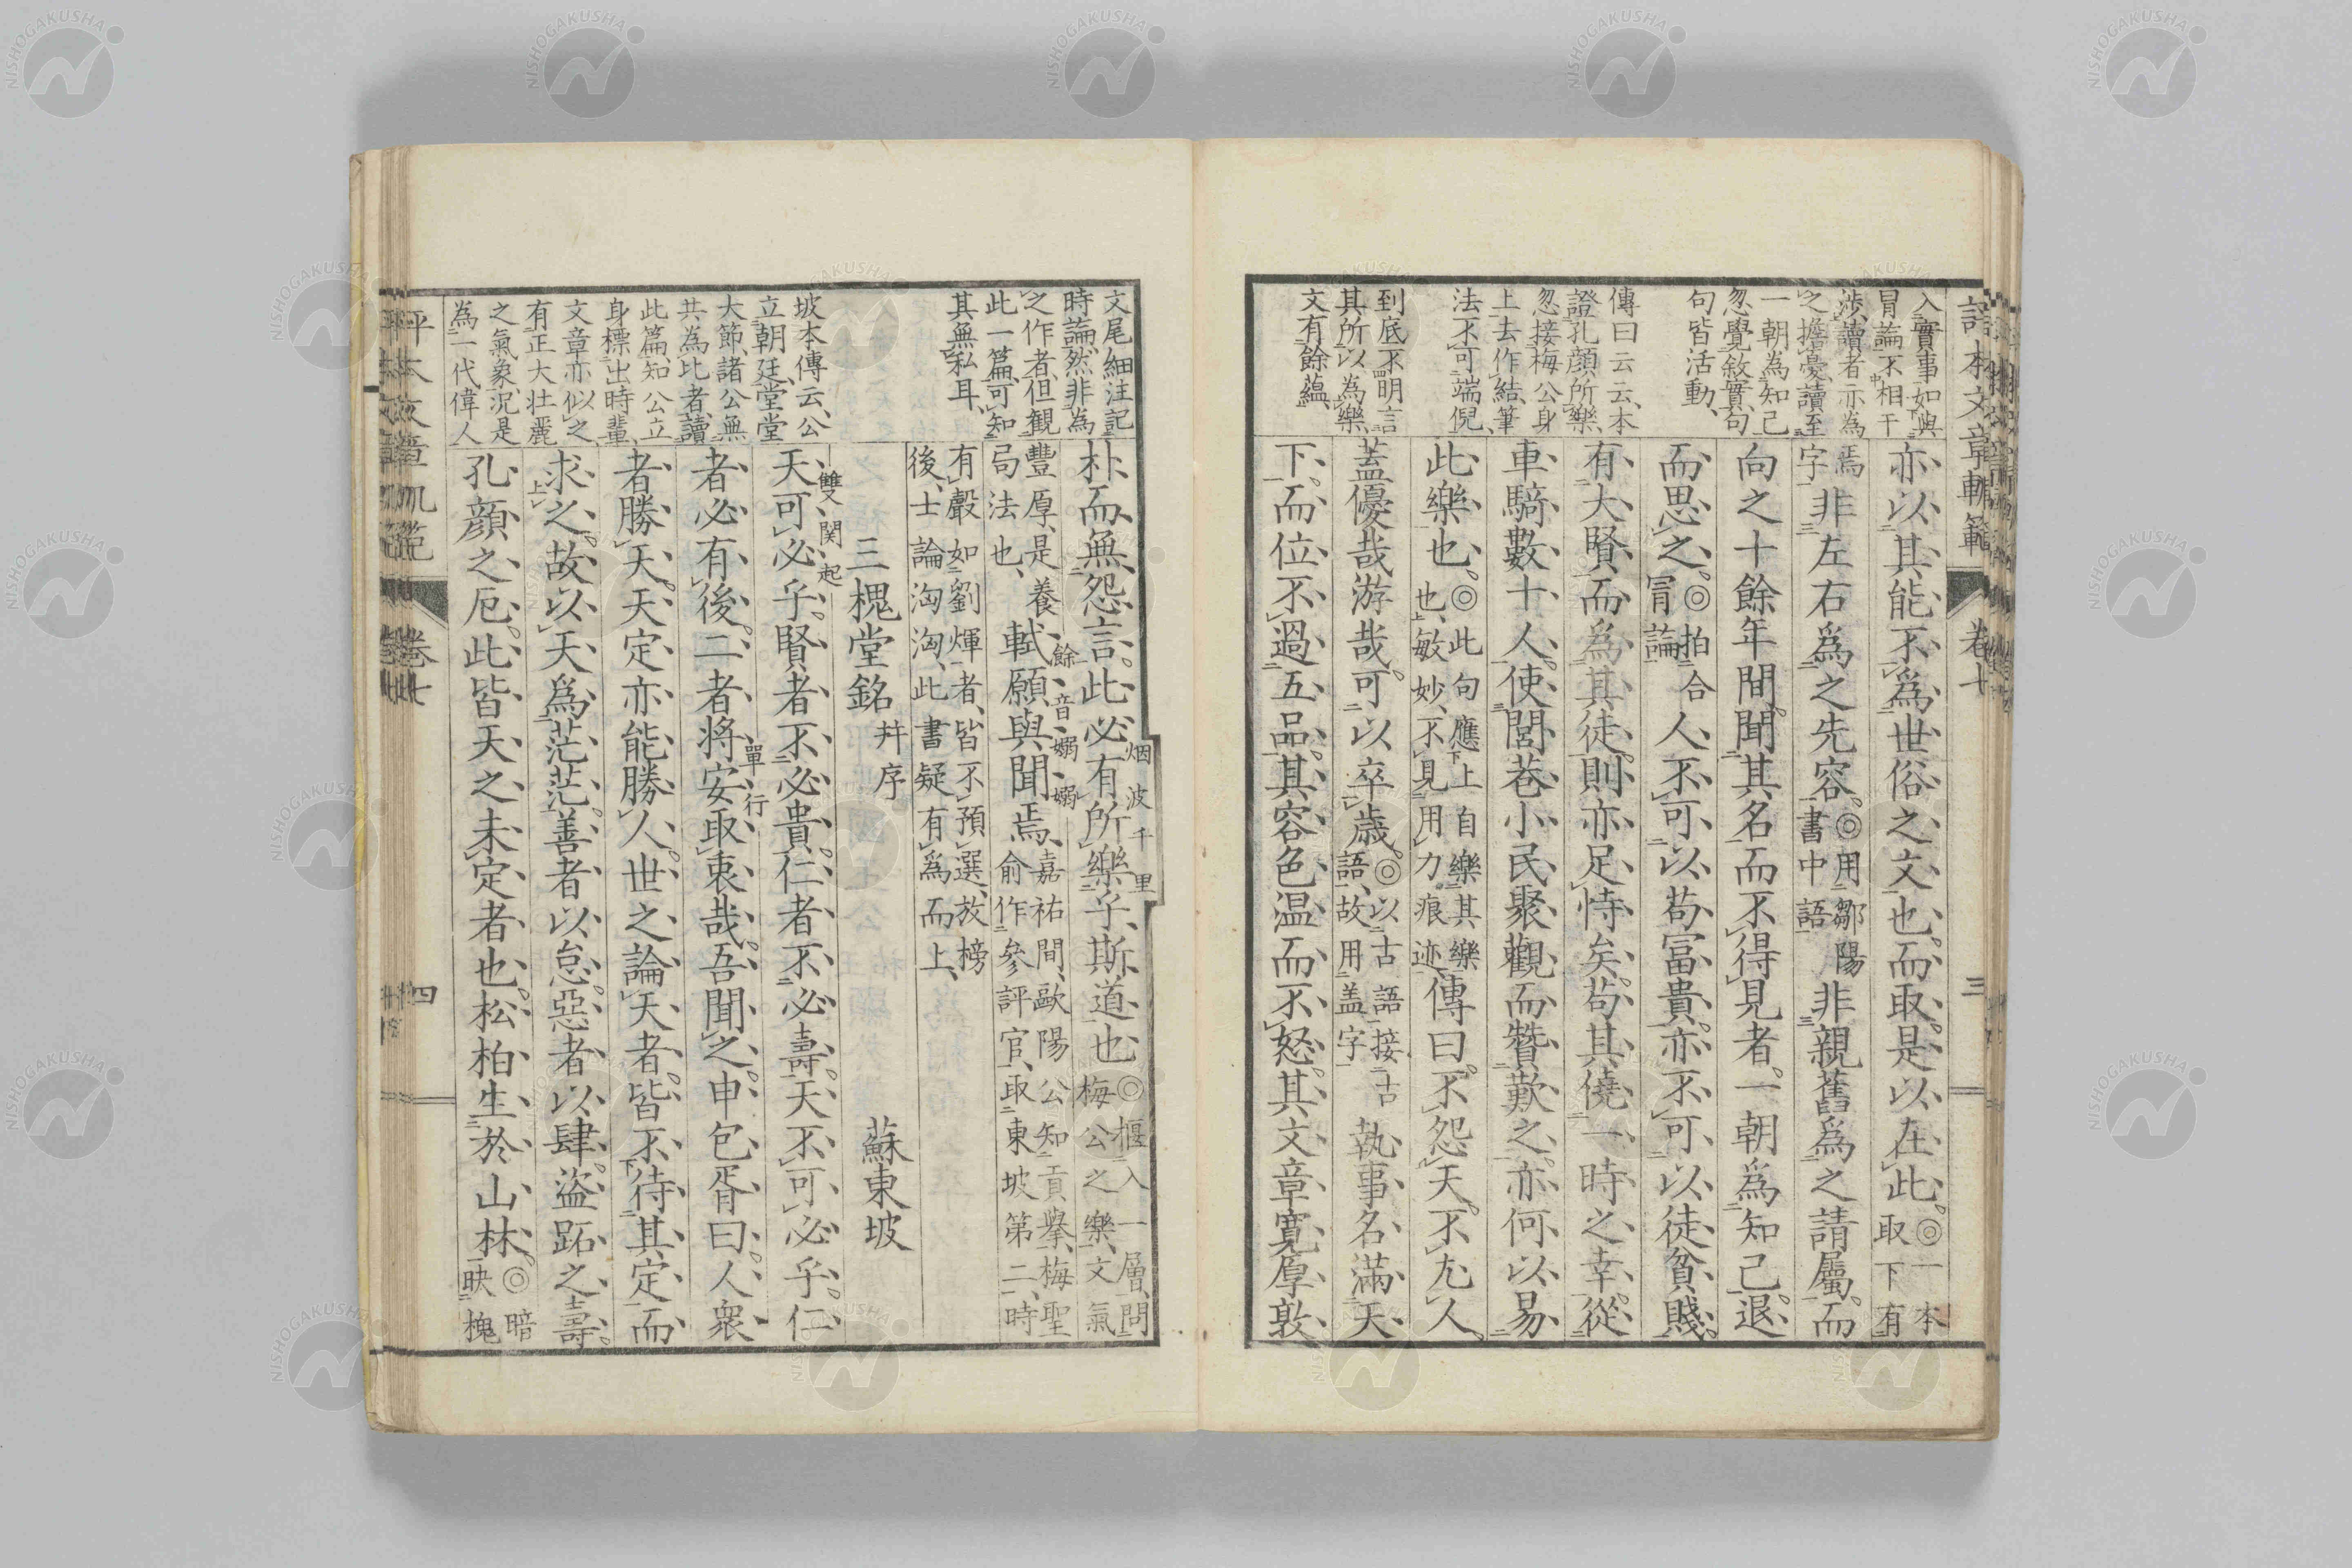 評本文章軌範　卷七　三
入實事如與
冒論不相干
渉讀者亦為
之擔憂讀至
一朝為知己
忽覺敘實句
句皆活動
傳曰云云本
證孔顔所樂
忽接梅公身
上去作結筆
法不可端倪
到底不明言
其所以為樂
文有餘蘊
亦以其能不爲世俗之文也而取是以在此◎一本取下有
焉字非左右爲之先容◎用鄒陽書中語非親舊爲之請屬而
向之十餘年間聞其名而不得見者一朝爲知己退
而思之◎拍合冐論人不可以苟富貴亦不可以徒貧賤
有大賢而爲其徒則亦足恃矣苟其僥一時之幸從
車騎數十人使閭巷小民聚觀而贊歎之亦何以易
此樂也◎此句應上自樂其樂也敏妙不見用力痕迹傳曰不怨天不尤人
蓋優哉游哉可以卒歳◎以古語接古語故用盖字執事名滿天
下而位不過五品其容色温而不怒其文章寬厚敦
文尾細注記
時論然非為
之作者但觀
此一篇可知
其無私耳
坡本傳云公
立朝廷堂堂
大節諸公無
共為比者讀
此篇知公立
身標出時輩
文章亦似之
有正大壮麗
之氣象況是
為一代偉人
烟波千里
朴而無怨言此必有所樂乎斯道也◎樞入一層問梅公之樂文氣
豐厚是養局法也軾願與聞焉嘉祐間歐陽公知貢擧梅聖俞作參評官取東坡第二時
餘音嫋嫋
有聲如劉煇者皆不預選放榜後士論洶洶此書疑有爲而上
三槐堂銘并序　蘇東坡
雙関起
天可必乎賢者不必貴仁者不必壽天不可必乎仁
者必有後二者將安取衷哉吾聞之申包胥曰人衆
單行
者勝天天定亦能勝人世之論天者皆不待其定而
求之故以天爲茫茫善者以怠惡者以肆盜跖之壽
孔顔之厄此皆天之未定者也松柏生於山林◎暗映槐
評本文章軌範　卷七　四